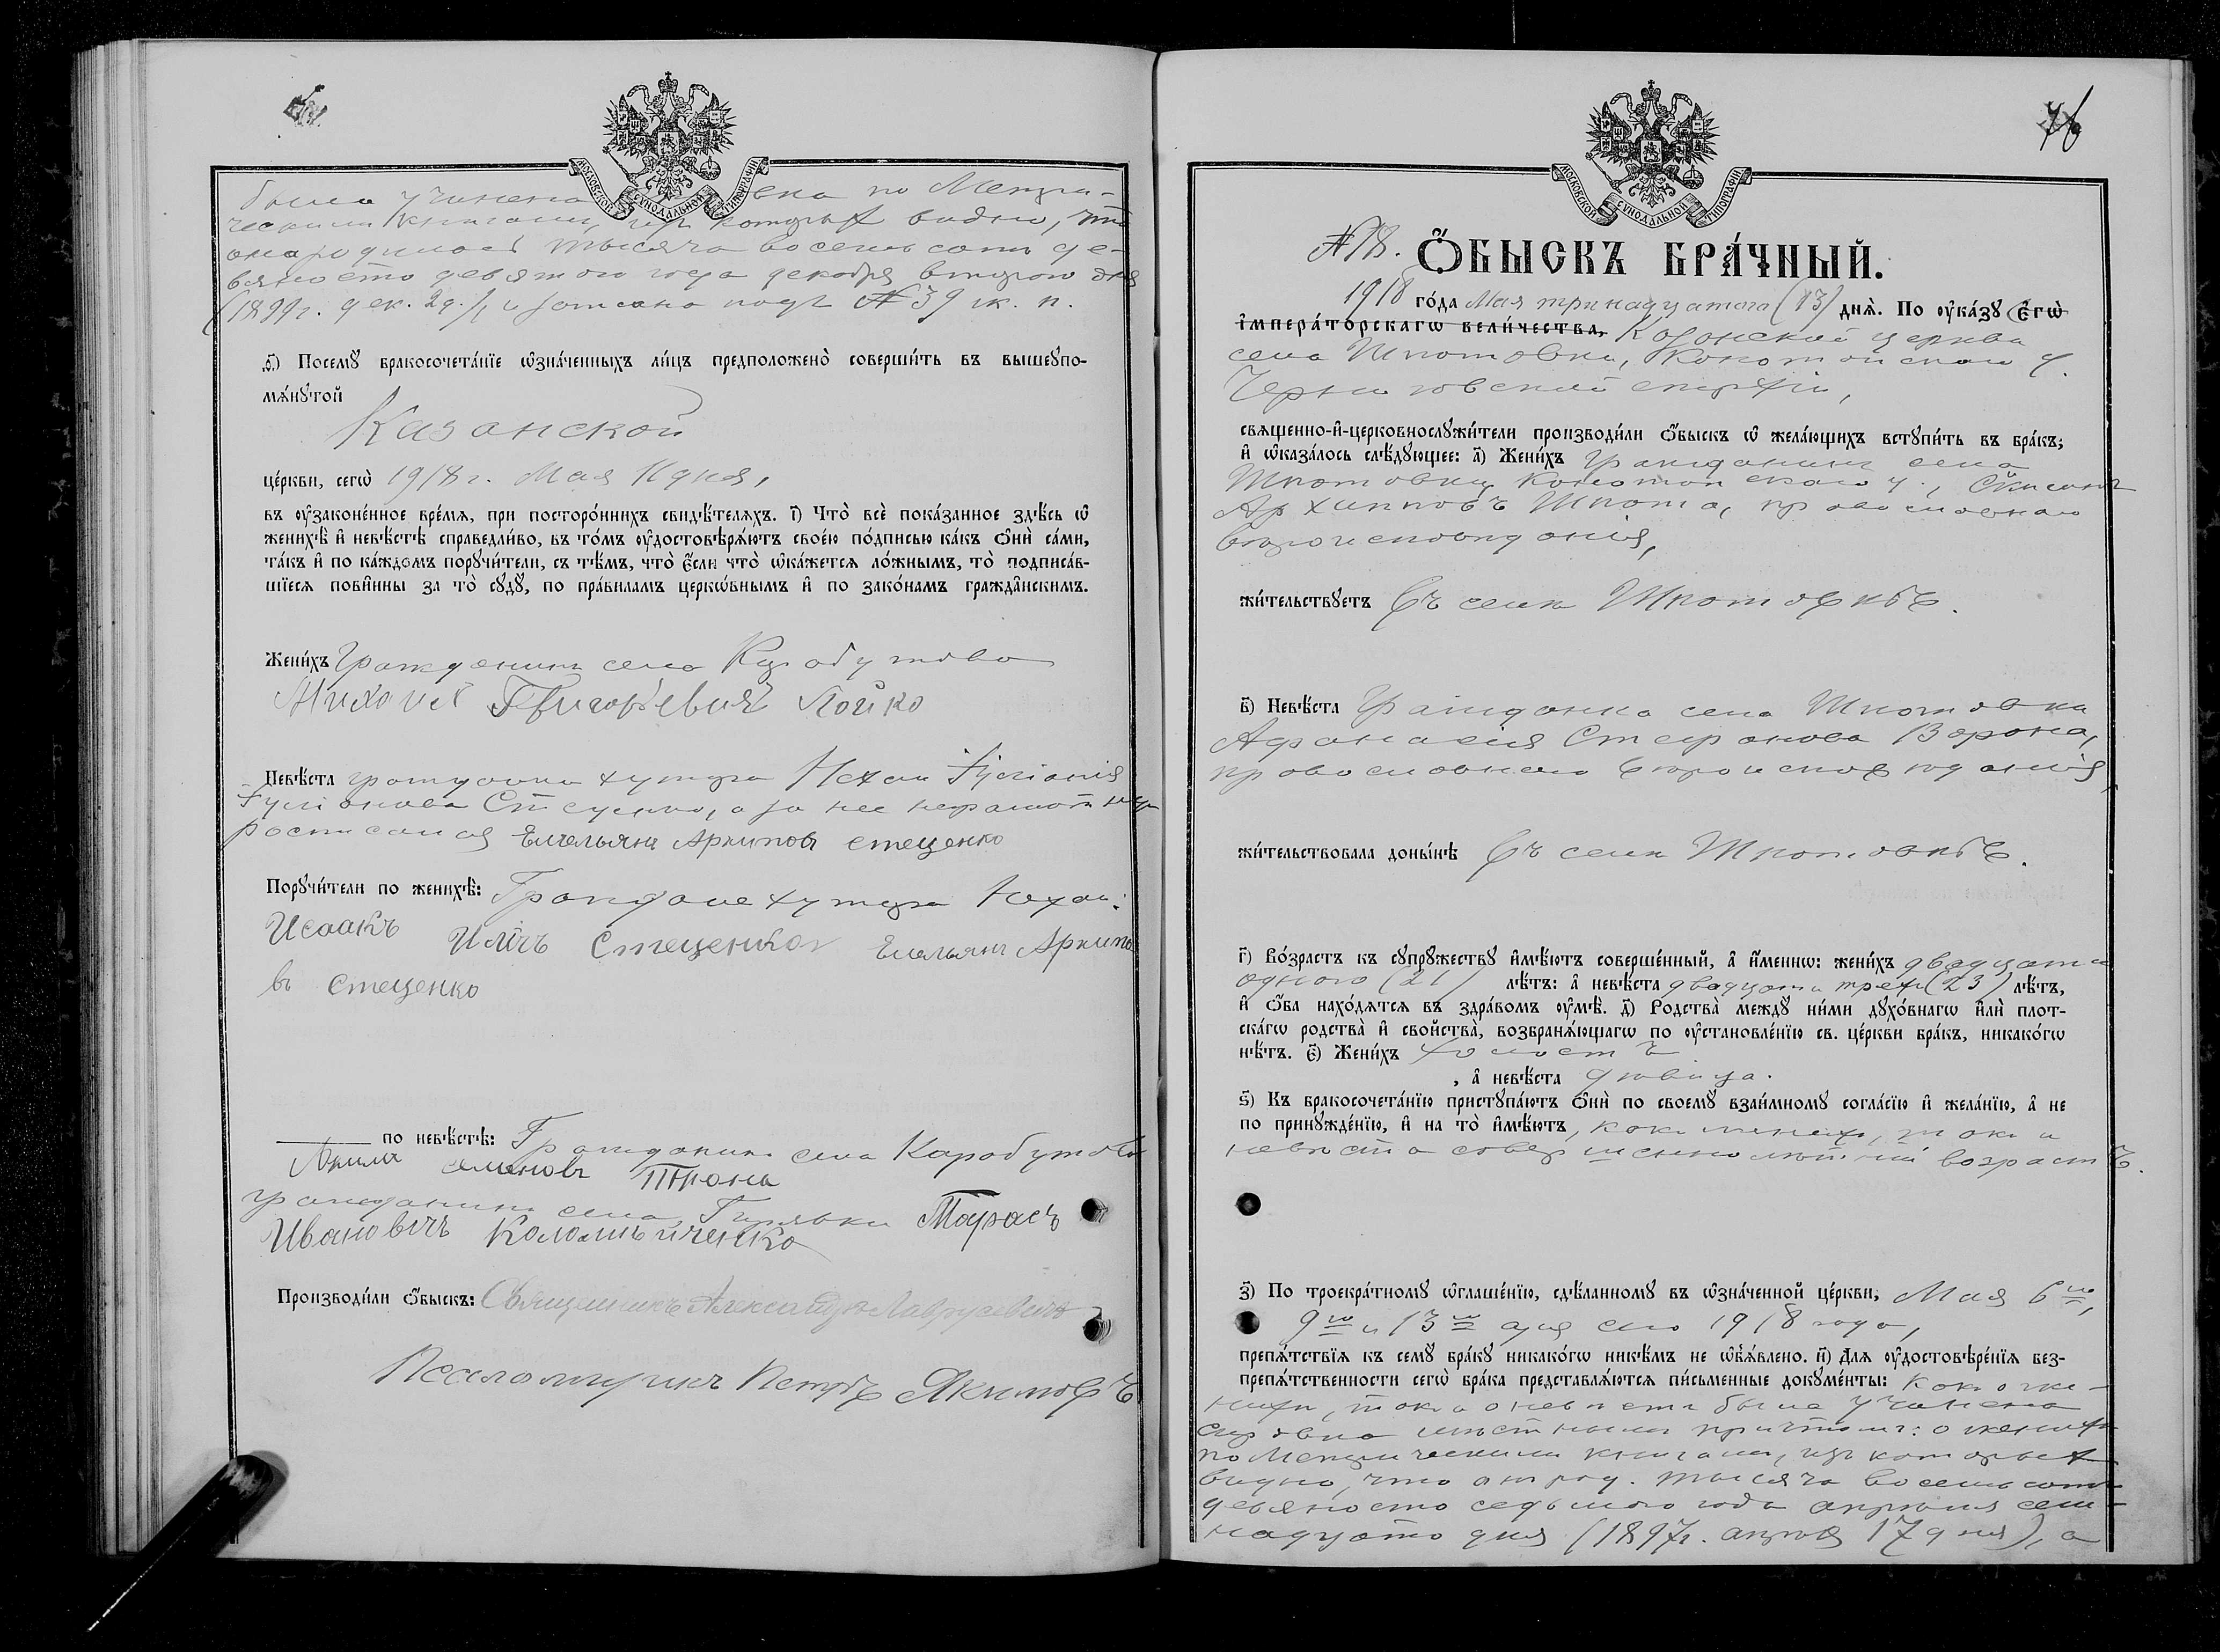 МОСКОВСКОЙ СУНОДАЛЬНОЙ ТИПОГРАФІИ
была учинена справка по Метри-
ческимъ книгамъ, изъ которыхъ видно, что
она родилась тысяча восемьсотъ де-
вяносто девятого года декабря второго дня
(1899г. дек. 2 д.), и записана подъ № 39 ж. п.
ѳ҃) Посемꙋ бракосочета́нїе ѡ҆зна́ченныхъ ли́цъ предположено̀ соверши́ть въ вышеꙋпо-
мѧ́нꙋтой
Казанской
це́ркви, сегѡ̀ 1918 г. Мая дня,
въ ᲂу҆зако́не́нное вре́мѧ, при посторо́ннихъ свидѣ́телѧхъ. і҃) Что̀ всѐ пока́занное здѣ́сь ѡ҆
женихѣ̀ и҆ невѣ́стѣ справедли́во, въ то́мъ ᲂу҆достовѣрѧ́ютъ свое́ю по́дписью ка́къ ѻ҆нѝ са́ми,
та́къ и҆ по ка́ждомъ порꙋчи́тели, съ тѣ́мъ, что̀ є҆́сли что̀ ѡ҆ка́жетсѧ ло́жнымъ, то̀ подписа́в-
шїесѧ пови́нны за то̀ сꙋдꙋ̀, по пра́виламъ церко́внымъ и҆ по зако́намъ гражда́нскимъ.
Жени́хъ Гражданинъ села Карабутово
Михаилъ Григорьевичъ Лойко
Невѣ́ста гражданка хутора
Стеценко, а за нее неграмотную
росписался Емельянъ Архиповъ стеценко
Порꙋчи́тели по женихѣ̀: Граждане хутора
Исаакъ Иличъ Стеценко Емельянъ Архипо
въ стеценко
по невѣ́стѣ: Гражданинъ села Карабутово
Семеновъ
гражданинъ села Гирявки Тарасъ
Ивановичъ Коломыйченко
Производи́ли ѻ҆́быскъ: Священникъ Александръ
Псаломщикъ Петръ Якимовъ
76
МОСКОВСКОЙ СУНОДАЛЬНОЙ ТИПОГРАФІИ
№ 18. Ѻ҆́БЫСКЪ БРА́ЧНЫЙ.
1918 го́да Мая тринадцатого (13) днѧ̀. По ᲂу҆ка́зꙋ Є҆гѡ̀
і҆мпера́торскагѡ вели́чества, Казанской церкви
села Шпотовки, Конотопскаго у.
Черниговской епархіи,
свѧще́нно-и҆-церковнослꙋжи́тели производи́ли ѻ҆́быскъ ѡ҆ жела́ющихъ встꙋпи́ть въ бра́къ;
и҆ ѡ҆каза́лось слѣ́дꙋющее: а҃) Жени́хъ Гражданинъ села
Шпотовки Конотопскаго у.,
Архиповъ Шпота, православнаго
вѣроисповѣданія,
жи́тельствꙋетъ въ селѣ Шпотовкѣ.
в҃) Невѣ́ста Гражданка села Шпотовки
Афанасія Стефанова Ворона,
православнаго вѣроисповѣданія,
жи́тельствовала доны́нѣ въ селѣ Шпотовкѣ.
г҃) Во́зрастъ къ сꙋпрꙋ́жествꙋ и҆мѣ́ютъ соверше́нный, а҆ и҆́меннѡ: жени́хъ двадцати
одного (21) лѣ́тъ: а҆ невѣ́ста двадцати трехъ (23) лѣ́тъ,
и҆ ѻ҆́ба нахо́дѧтсѧ въ здра́вомъ ᲂу҆мѣ̀. д҃) Родства̀ междꙋ̀ ни́ми дꙋхо́внагѡ и҆лѝ плот-
ска́гѡ родства̀ и҆ сво́йства̀, возбранѧ́ющагѡ по ᲂу҆становле́нїю св. це́ркви бра́къ, никако́гѡ
нѣ́тъ. є҃) Жени́хъ холостъ
, а҆ невѣ́ста дѣвица.
ѕ҃) Къ бракосочета́нїю пристꙋпа́ютъ ѻ҆нѝ по своемꙋ̀ взаи́мномꙋ согла́сїю и҆ жела́нїю, а҆ не
по принꙋжде́нїю, и҆ на то̀ и҆мѣ́ютъ, какъ женихъ, такъ и
невѣста совершеннолѣтній возрастъ.
з҃) По троекра́тномꙋ ѡ҆глаше́нїю, сдѣ́ланномꙋ въ ѡ҆зна́ченной це́ркви, Мая 6го,
9го и 13го дня сего 1918 года,
препѧ́тствїѧ къ семꙋ̀ бра́кꙋ никако́гѡ никѣ́мъ не ѡ҆б̾ѧ́влено. и҃) Длѧ ᲂу҆достовѣре́нїѧ без-
препѧ́тственности сегѡ̀ бра́ка представлѧ́ютсѧ пи́сьменные докꙋме́нты: какъ о же-
нихѣ, такъ и о невѣстѣ была учинена
справка мѣстнымъ причтомъ: о женихѣ
по Метрическимъ книгамъ, изъ которыхъ
видно, что онъ род. тысяча восемьсотъ
девяносто седьмого года апрѣля сем-
надцато дня (1897г. апрѣля 17 дня), а